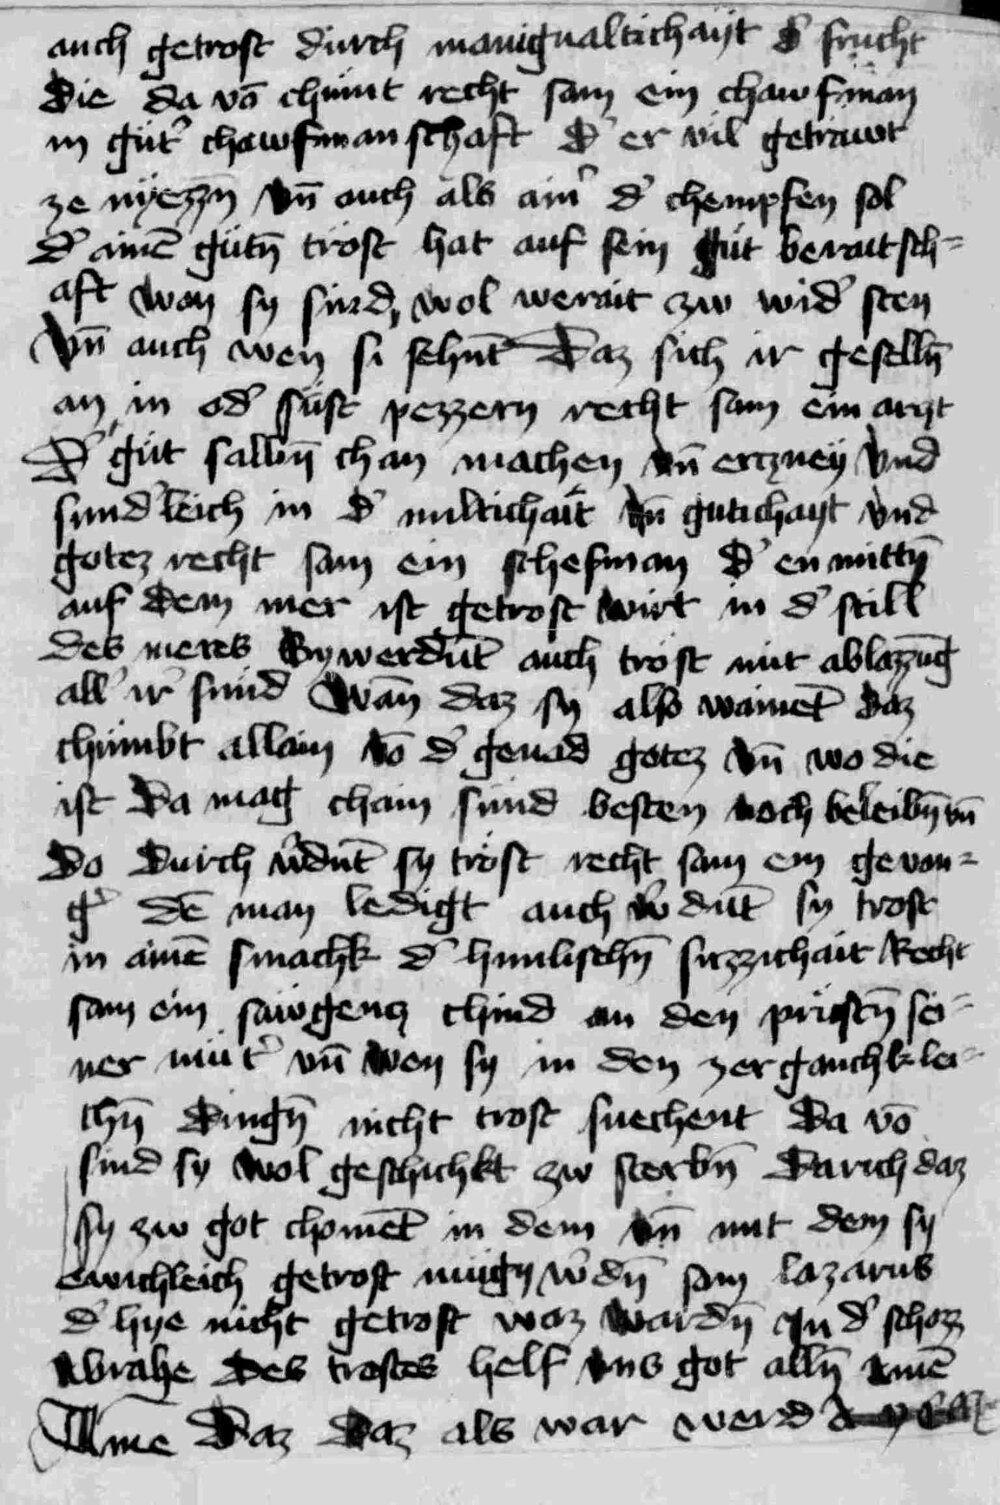 auch getrost durch manigualtichayt d' frucht
die da võ chumt recht sam ein chawfman
in gut' chawfmanschaft d' er vil getrawt
ze nyezzn̄ vn̄ auch als aim' d' chempfen sol
d' aimē gutn̄ trost hat auf sein gut beraitsch=
aft wan sy sind wol werait zw wid' sten
vn̄ auch wen si sehnt̄ daz sich ir geselln̄
an in od' sust pezzern recht sam ein arczt
d' gut salbn̄ chan machen vn̄ erczney vnd
sund'leich in d' miltichait vn̄ gutichayt vnd
gotez recht sam ein schefman d' en mittn̄
auf dem mer ist getrost wirt in d' still
des meres Sy werdūt auch trost mit ablazzūg
all' ir' sund Wan̄ daz sy also wainēt daz
chumbt allain võ d' genad gotez vn̄ wo die
ist da mag chain sund besten noch beleibn̄ vn̄
do durch w'dūt sy trost recht sam ein gevan=
g' dē man ledigt auch w'dūt sy trost
in aimē smachk d' himlischn̄ suzzichait Recht
sam ein sawgencz chind an den prustn̄ sei=
ner mut' vn̄ wen sy in den zerganchklei=
chn̄ dingn̄ nicht trost suechent da võ
sind sy wol geschichkt zw sterbn̄ darich daz
sy zw got chomēt in dem vn̄ mit dem sy
ewichleich getrost mugn w'dn̄ sam lazarus
d' hye nicht getrost waz wardn̄ In d' schozz
abrahe des trostes helf vns got alln̄ amē
Ame daz daz als war werd